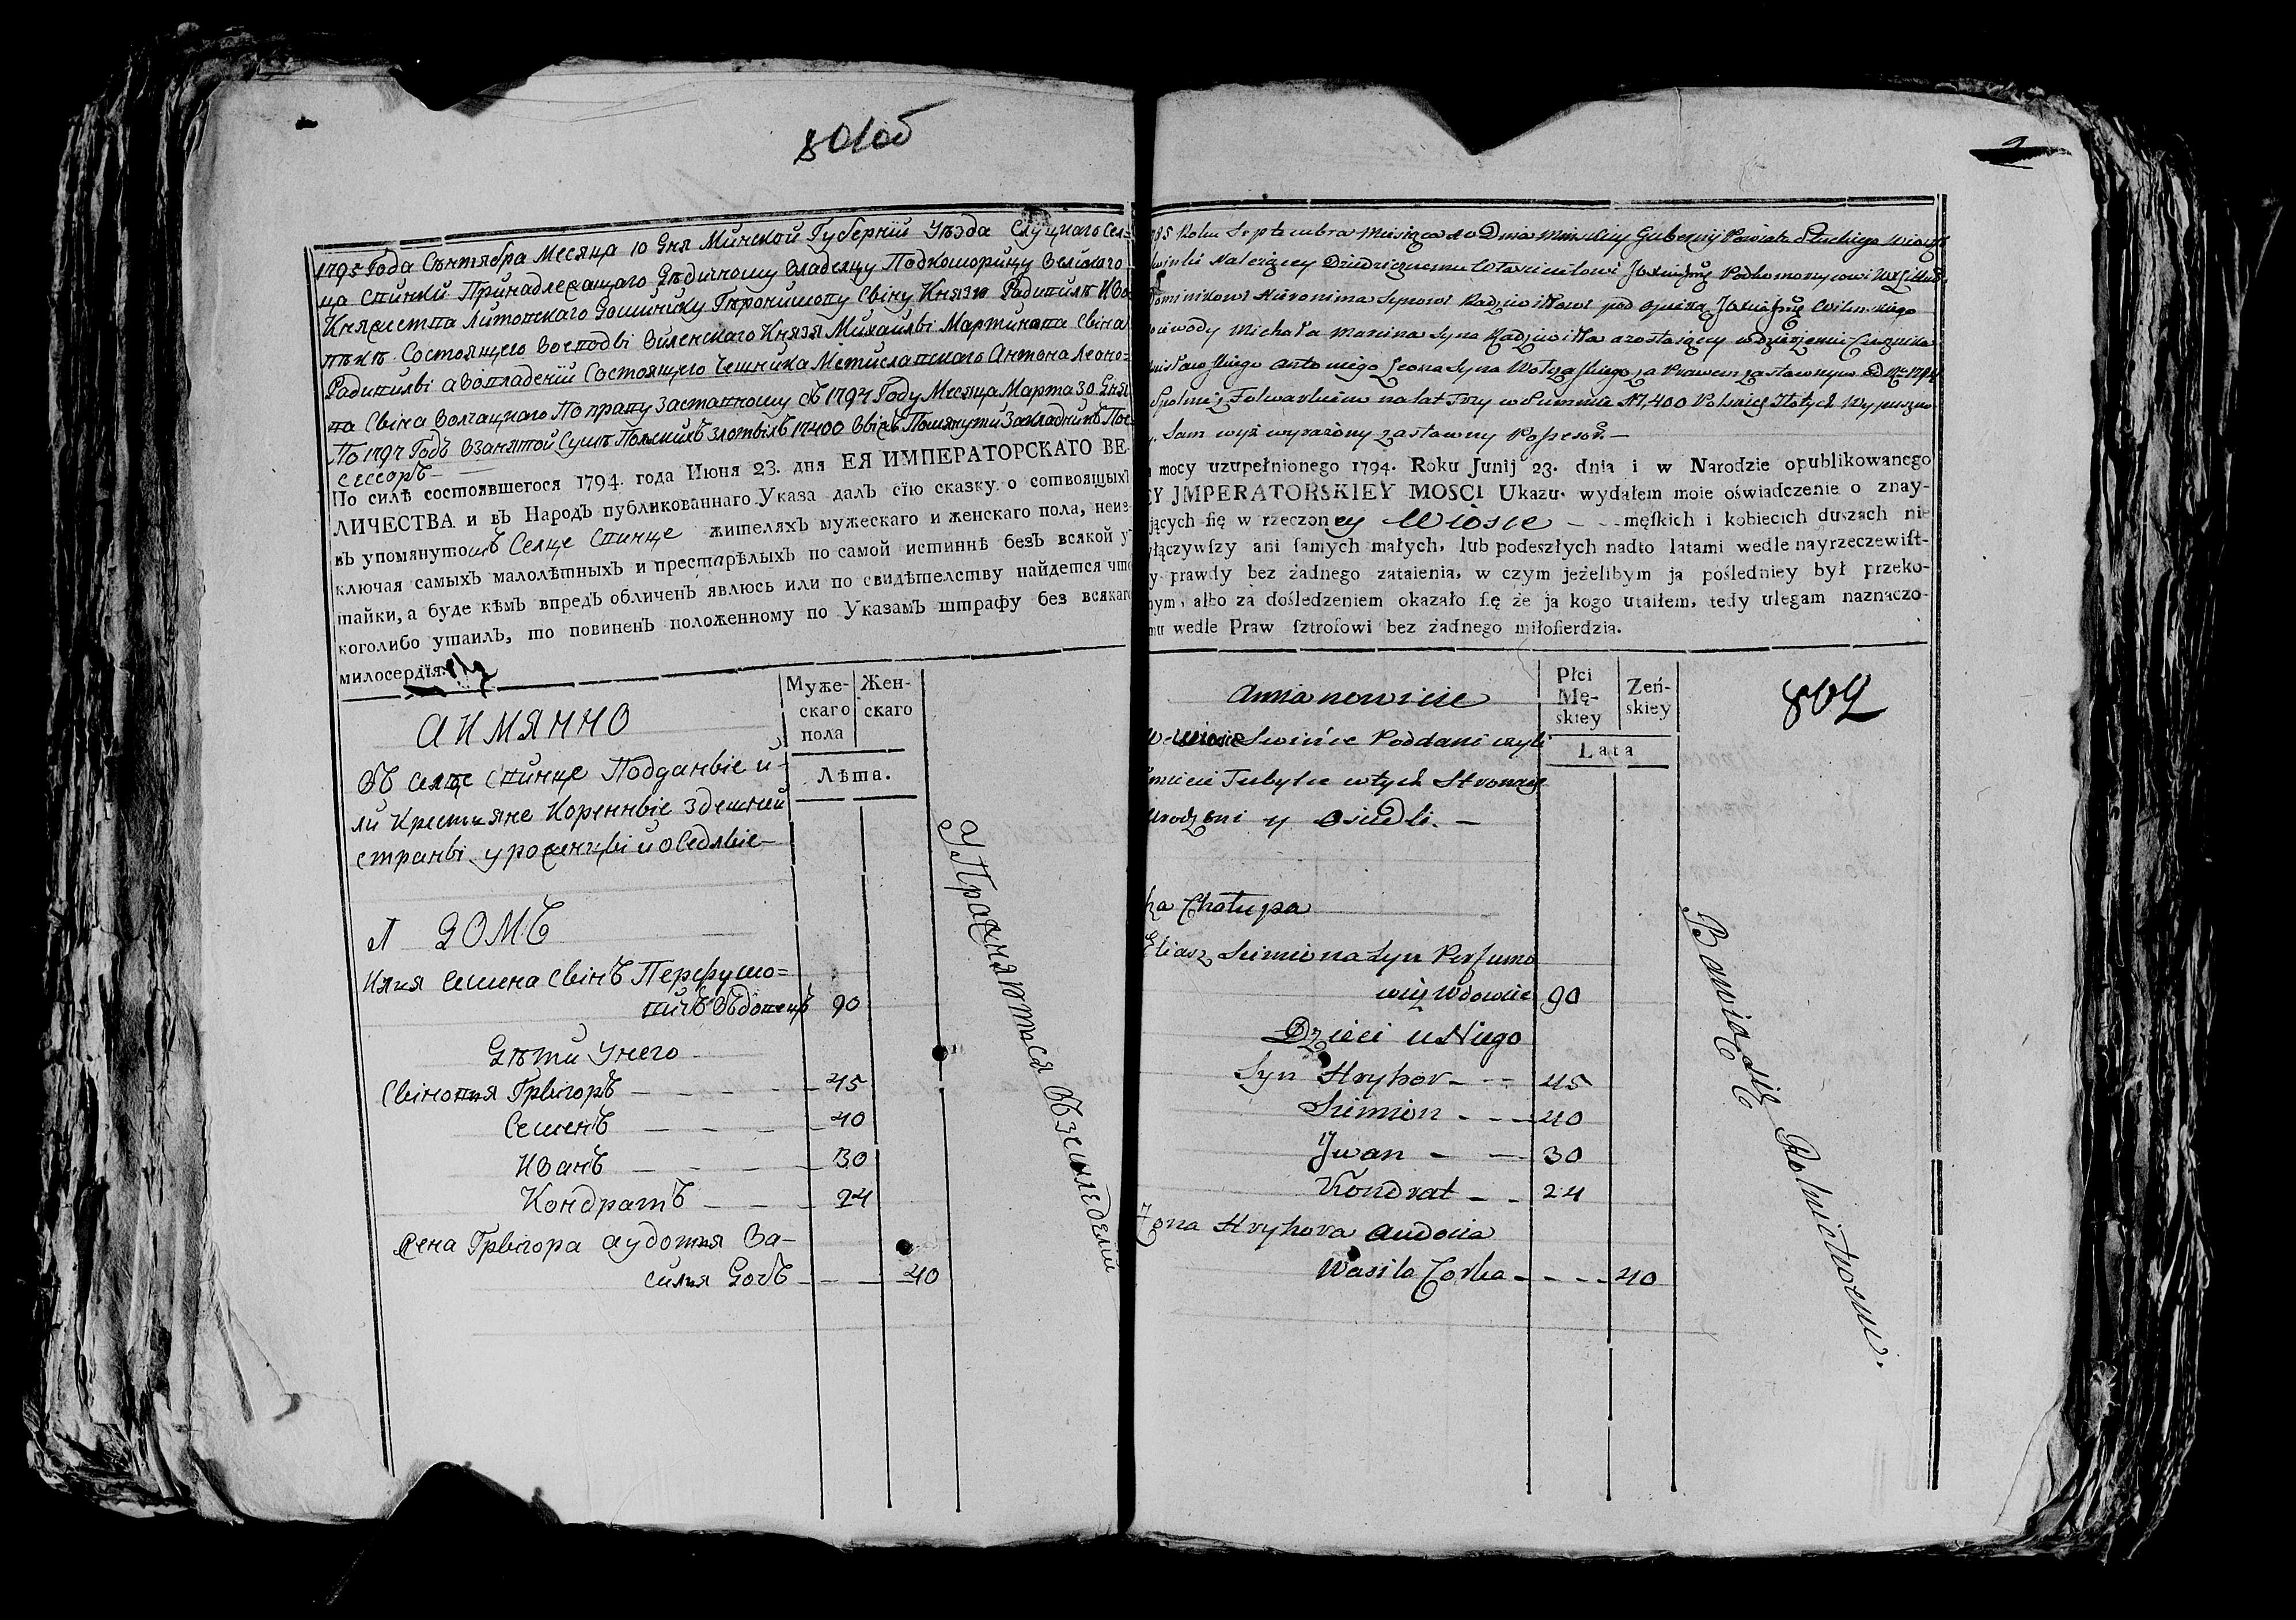 801об
1795 Года Сѣнтября Месяца 10 Дня Минской Губерніи Уѣзда Слуцкаго Сел=
ца Свинки Принадлежащаго Дѣдичному Владелцу Подкоморицу Великаго
Княжества Литовскаго Доминику Гѣронимову Сыну Князю Радивилѣ
Состоящего Воеводы Виленскаго Князя Михайлы Мартинова Сына
Радивилы а Вовладеніи Состоящего Чешника Мстиславскаго Антона Леоно=
ва Сына Волчацкаго По праву Заставному съ 1794 Году Месяца Марта 30 Дня
По 1797 Годъ Взанятой Сумѣ Полскихъ Злотыхъ 17400 Помянутй Закладникъ Пос=
сессоръ —
По силѣ состоявшегося 1794. года Июня 23. дня ЕЯ ИМПЕРАТОРСКАГО ВЕ-
ЛИЧЕСТВА и въ Народъ публикованнаго Указа далъ сїю сказку о сотвоящыхъ
въ упомянутомъ Селце Свинце жителяхъ мужескаго и женскаго пола, неиз-
ключая самыхъ малолѣтныхъ и престарѣлыхъ по самой истиннѣ безъ всякой у
тайки, а буде кѣмъ впредъ обличенъ явлюсь или по свидѣтелству найдется что
коголибо утаилъ, то повиненъ положенному по Указамъ штрафу без всякаго
милосердїя.
Муже-
скаго
пола
Жен-
скаго
Лѣта.
АИМЯННО
Въ Селце Свинце Подданые и-
ли Крестьяне Коренные здешней
страны уроженцы и оседлые—
1 ДОМЪ
Илия Семена Сынъ Перфумо=
вичъ Вдовецъ 90
Дѣти Унего
Сыновья Грыгоръ — — — 45
Семенъ — — — 40
Иванъ — — — 30
Кондратъ — — — 24
Жена Грыгора Аудотья Ва-
силья Дочъ — — — 40
Упражняются Вземледелии
785 Roku Septembra Miesiąca 10 Dnia Minskiey Gubernij Powiatu Słuckiego
Swinki Nalerzącey Dziedzicznemu Podkomorycowi
Dominikowi Hieronima Synowi Radziwiłłowi pod opieką Wilenskiego
Woiewody Michała Marcina Syna Radziwiłła a zostaiącey w dzierżeniu Czesznika
Antoniego Leona Syna Wołczackiego za Prawem zastawnym od 1794
Folwarkiem na lat Trzy w Summie 17,400 Polskich Złotych
Sam wyż wyrażony zastawny Possesor. —
mocy uzupełnionego 1794. Roku Junij 23. dnia i w Narodzie opublikowanego
EY JMPERATORSKIEY MOSCI Ukazu. wydałem moie oświadczenie o znay-
jących się w rzeczoney Wiosce — męskich i kobiecich duszach nie
yłączywszy ani samych małych, lub podeszłych nadto latami wedle nayrzeczewist-
y prawdy bez żadnego zataienia, w czym jeżelibym ja pośledniey był przeko-
nym, albo za dośledzeniem okazało się że ja kogo utaiłem, tedy ulegam naznaczo-
mu wedle Praw sztrofowi bez żadnego miłosierdzia.
Płci
Mę-
skiey
Zeń-
skiey
Lata
802
Amianowicie
We Wiosce Swińce Poddani czyli
Kmiecie Tubylce w tych Stronach
Urodzeni y Osiedli. —
Chałupa
Eliasz Siemiona Syn Perfumo
wicz Wdowiec 90
Dzieci u Niego
Syn Hryhor — — 45
Siemion — — 40
Jwan — — 30
Kondrat — — 24
Żona Hryhora Audocia
Wasila Corka — — — 40
Bawią się Rolnictwem.